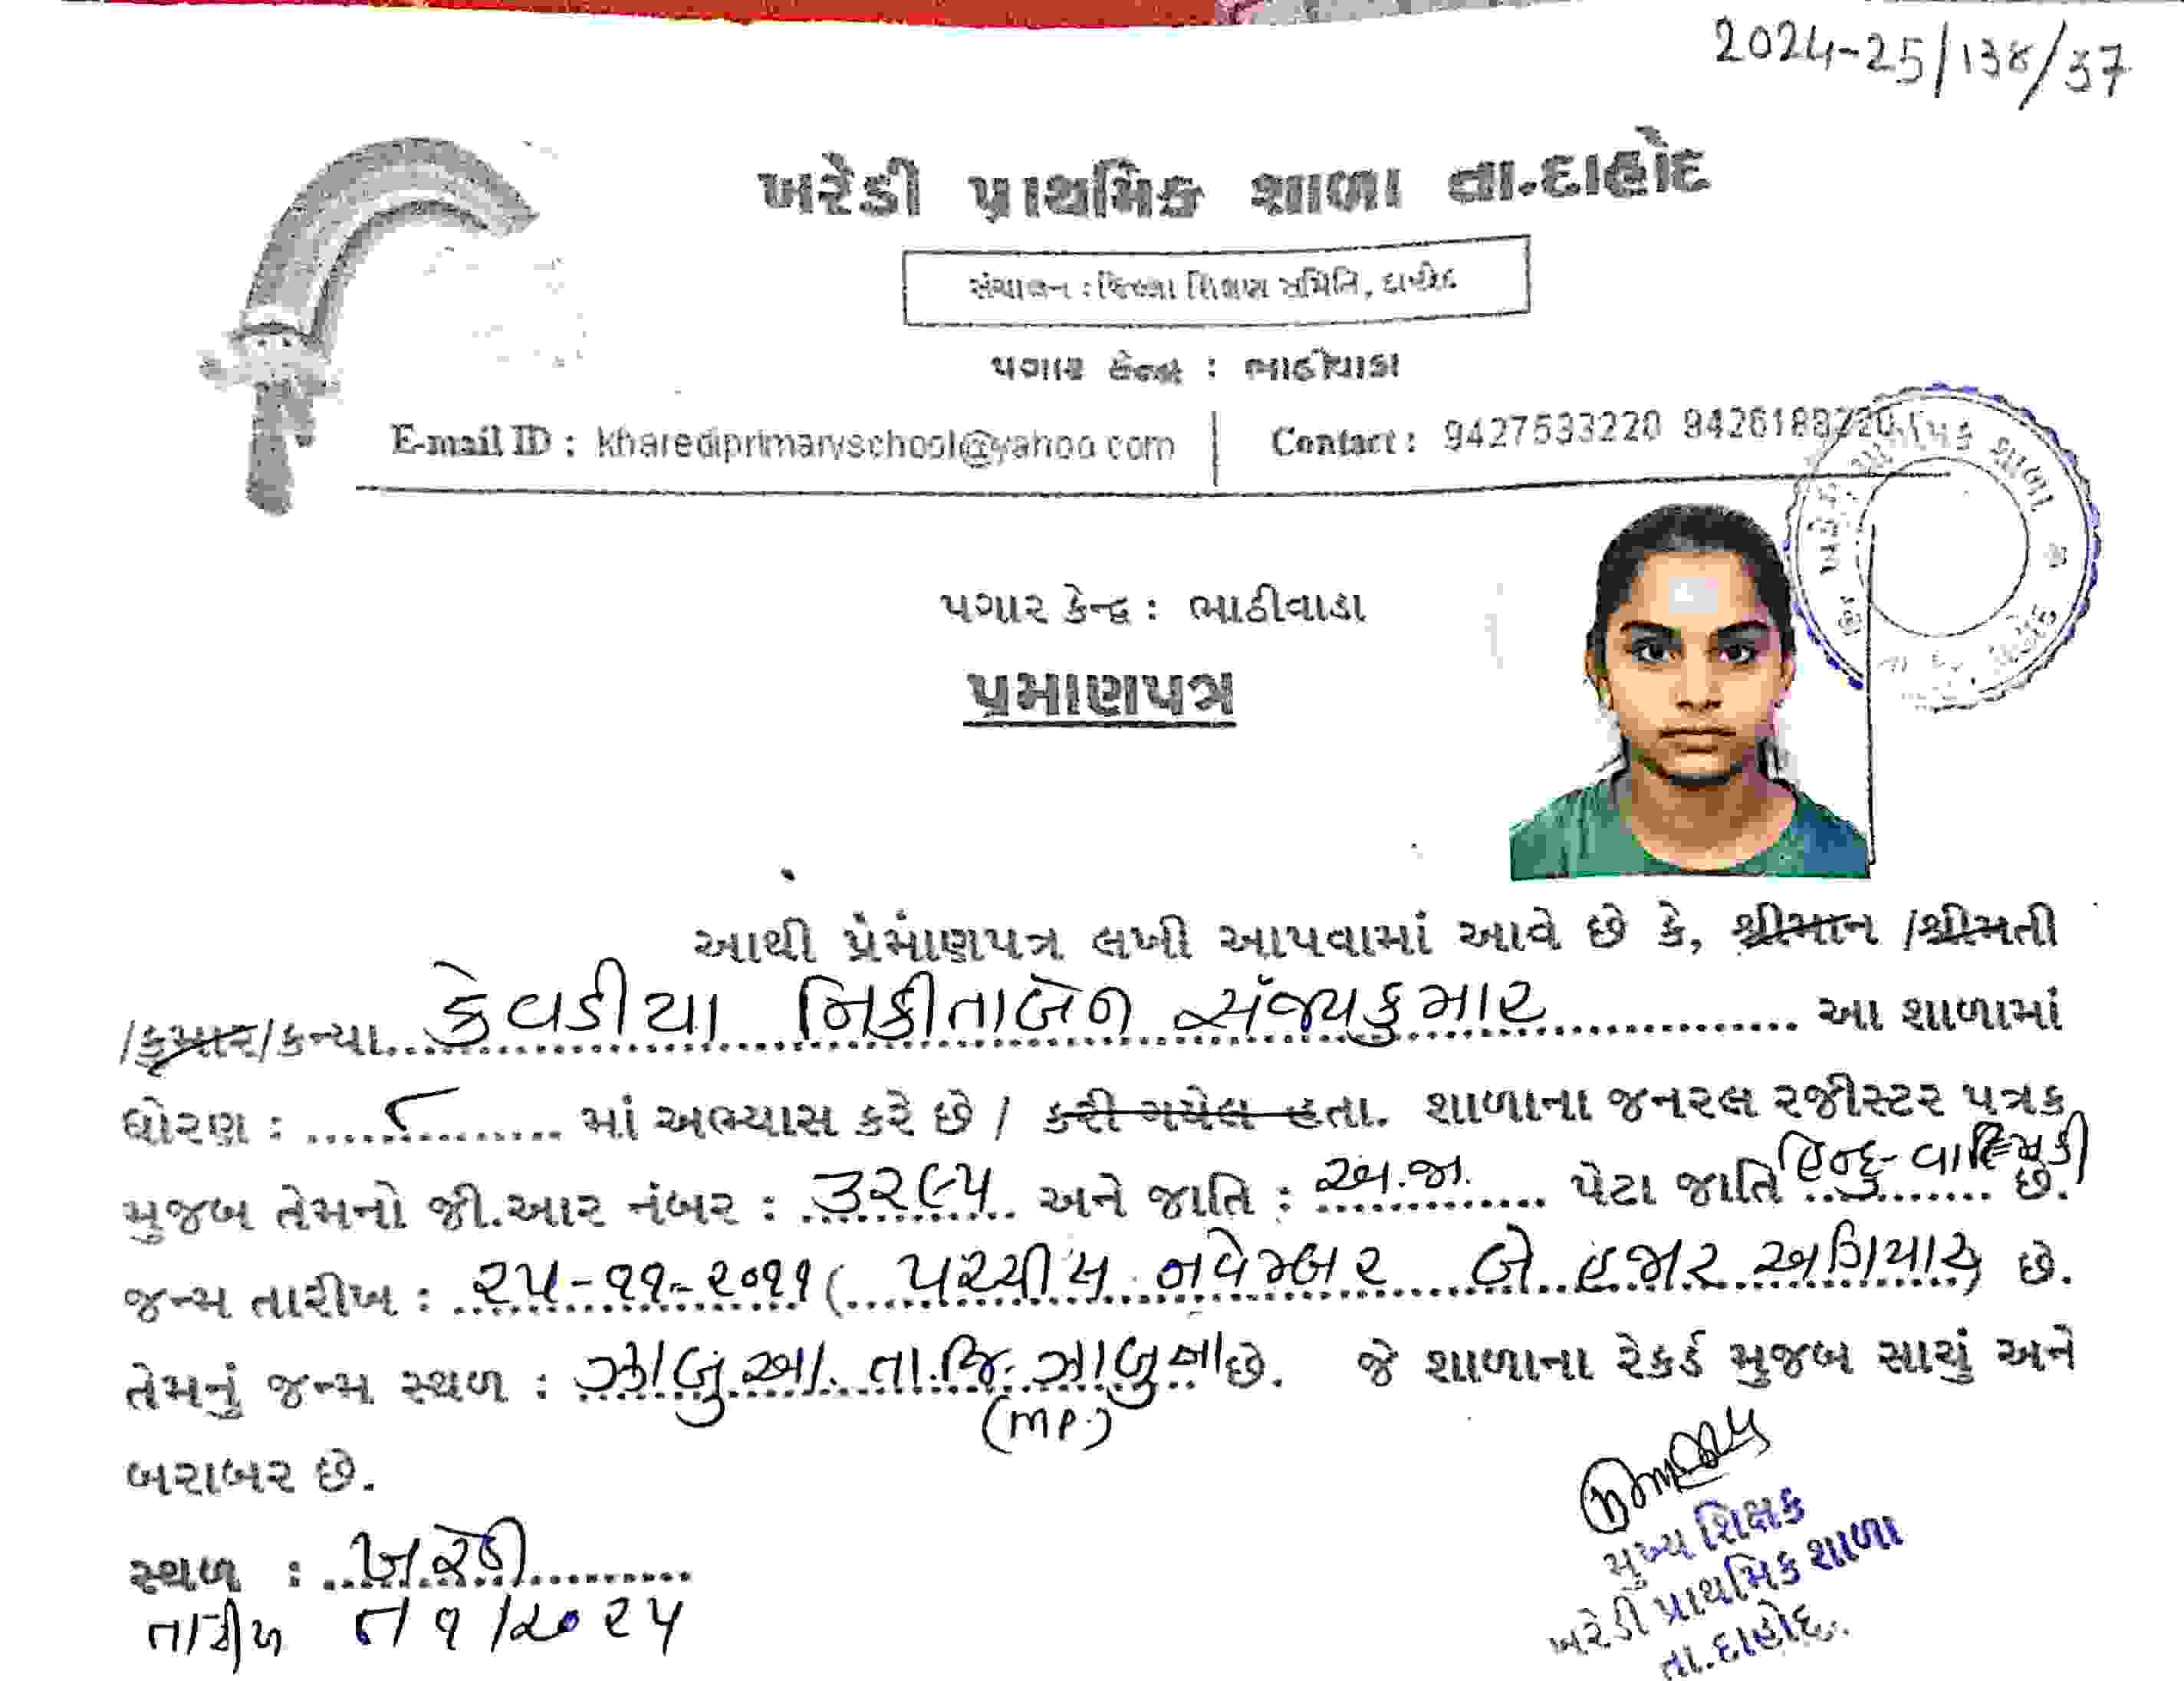 2024-25/138/37
ખરેડી પ્રાથમિક શાળા તા.દાહોદ
સંચાલન : જિલ્લા શિક્ષણ સમિતિ, દાહોદ
પગાર કેન્દ્ર : ભાઠીવાડા
E-mail ID : kharediprimaryschool@yahoo.com | Contact : 9427533220 9426188220
પગાર કેન્દ્ર : ભાઠીવાડા
પ્રમાણપત્ર
આથી પ્રમાણપત્ર લખી આપવામાં આવે છે કે, શ્રીમાન /શ્રીમતી
/કુમાર/કન્યા કેવડીયા નિકીતાબેન સંજયકુમાર આ શાળામાં
ધોરણ : ૮ માં અભ્યાસ કરે છે / કરી ગયેલ હતા. શાળાના જનરલ રજીસ્ટર પત્રક
મુજબ તેમનો જી.આર નંબર : ૩૨૯૫ અને જાતિ : અ.જા. પેટા જાતિ હિન્દુ-વાલ્મિકી છે.
જન્મ તારીખ : ૨૫-૧૧-૨૦૧૧ ( પચ્ચીસ નવેમ્બર બે હજાર અગિયાર) છે.
તેમનું જન્મ સ્થળ : ઝાબુઆ. તા.જિ. ઝાબુઆ છે. જે શાળાના રેકર્ડ મુજબ સાચું અને
(MP.)
બરાબર છે.
સ્થળ : ખરેડી
તારીખ ૮/૧/૨૦૨૫
મુખ્ય શિક્ષક
ખરેડી પ્રાથમિક શાળા
તા.દાહોદ.